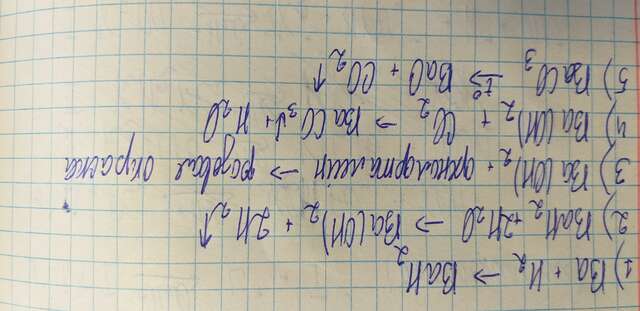 1) Ba + H₂ → BaH₂
2) BaH₂ + 2H₂O → Ba(OH)₂ + 2H₂↑
3) Ba(OH)₂ + фенолфталеин → розовая окраска
4) Ba(OH)₂ + CO₂ → BaCO₃↓ + H₂O
5) BaCO₃ t°⇒ BaO + CO₂↑